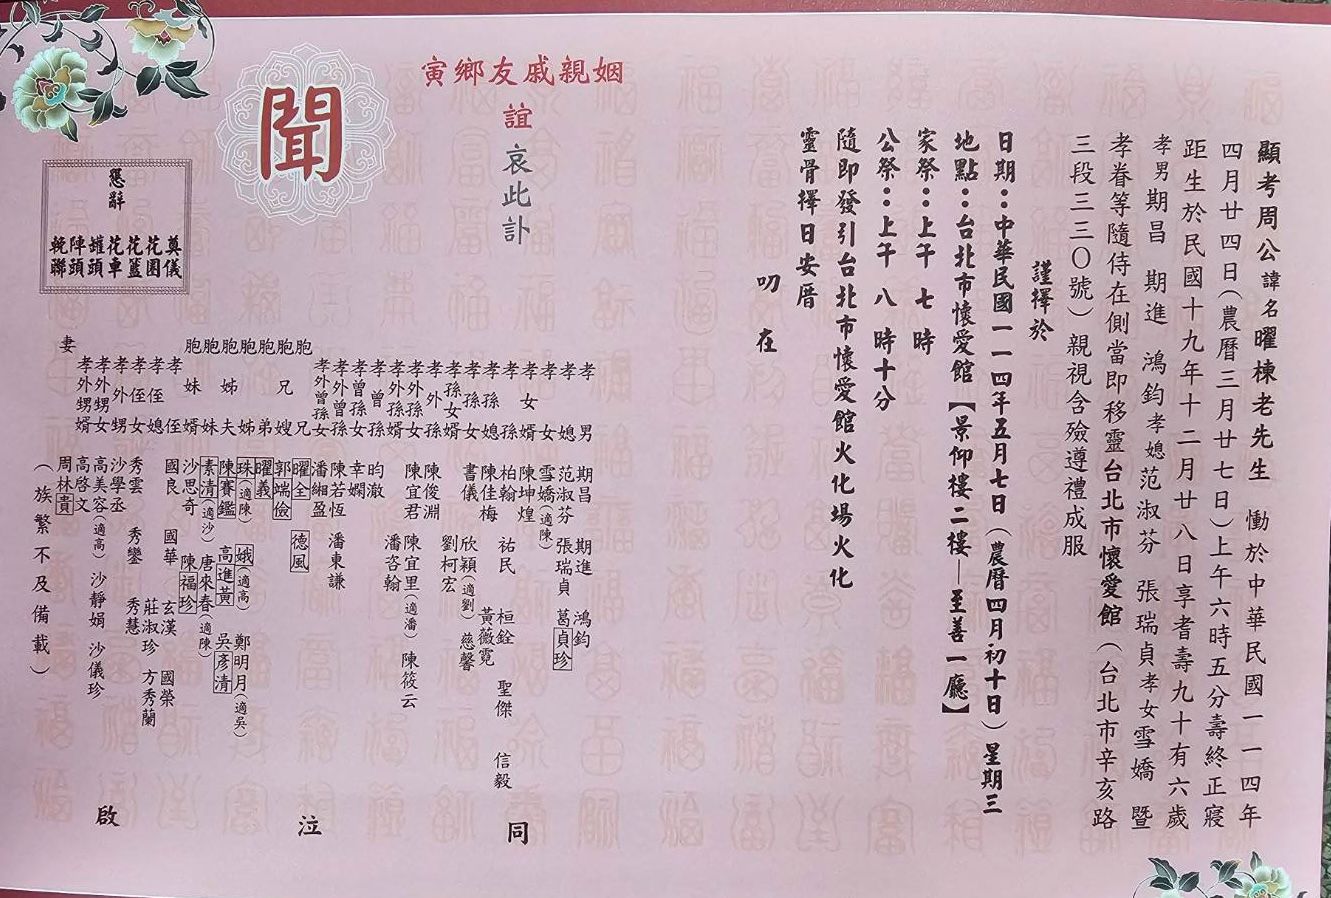 顯考周公諱名曜棟老先生 慟於中華民國一一四年
四月廿四日(農曆三月廿七日)上午六時五分壽終正寢
距生於民國十九年十二月廿八日享耆壽九十有六歲
孝男期昌 期進 鴻鈞孝媳范淑芬 張瑞貞孝女雪嬌 暨
孝眷等隨侍在側當即移靈台北市懷愛館(台北市辛亥路
三段三三〇號)親視含殮遵禮成服
謹擇於
日期：中華民國一一四年五月七日(農曆四月初十日)星期三
地點：台北市懷愛館【景仰樓二樓－至善一廳】
家祭：上午 七 時
公祭：上午 八 時十分
隨即發引台北市懷愛館火化場火化
靈骨擇日安厝
叨 在
姻親戚友鄉寅
誼 哀此訃
聞
懇辭
奠儀
花圈
花籃
花車
罐頭
陣頭
輓聯
孝男 期昌 期進 鴻鈞
孝媳 范淑芬 張瑞貞 葛貞珍
孝女 雪嬌(適陳)
孝女婿 陳坤煌
孝孫 柏翰 祐民 桓銓 聖傑 信毅
孝孫媳 陳佳梅 黃薇霓
孝孫女 書儀 欣穎(適劉) 慈馨
孝孫女婿 劉柯宏
孝外孫 陳俊淵
孝外孫女 陳宜君 陳宜里(適潘) 陳筱云
孝外孫婿 潘咨翰
孝曾孫 昀澈
孝曾孫女 幸嫻
孝外曾孫 陳若恆 潘東謙
孝外曾孫女 潘緗盈
胞兄 曜全 德風
胞兄嫂 郭端儉
胞弟 曜義
胞姊 珠(適陳) 娥(適高) 鄭明月(適吳)
胞姊夫 陳賽鑑 高進黃 吳彥清
胞妹 素清(適沙) 唐來春(適陳)
胞妹婿 沙思奇 陳福珍
孝侄 國良 國華 玄漢 國榮
孝侄媳 莊淑珍 方秀蘭
孝侄女 秀雲 秀鑾 秀慧
孝外甥 沙學丞
孝外甥女 高美容(適高) 沙靜娟 沙儀珍
孝外甥婿 高啓文
妻 周林貴
(族繁不及備載)
同 泣 啟